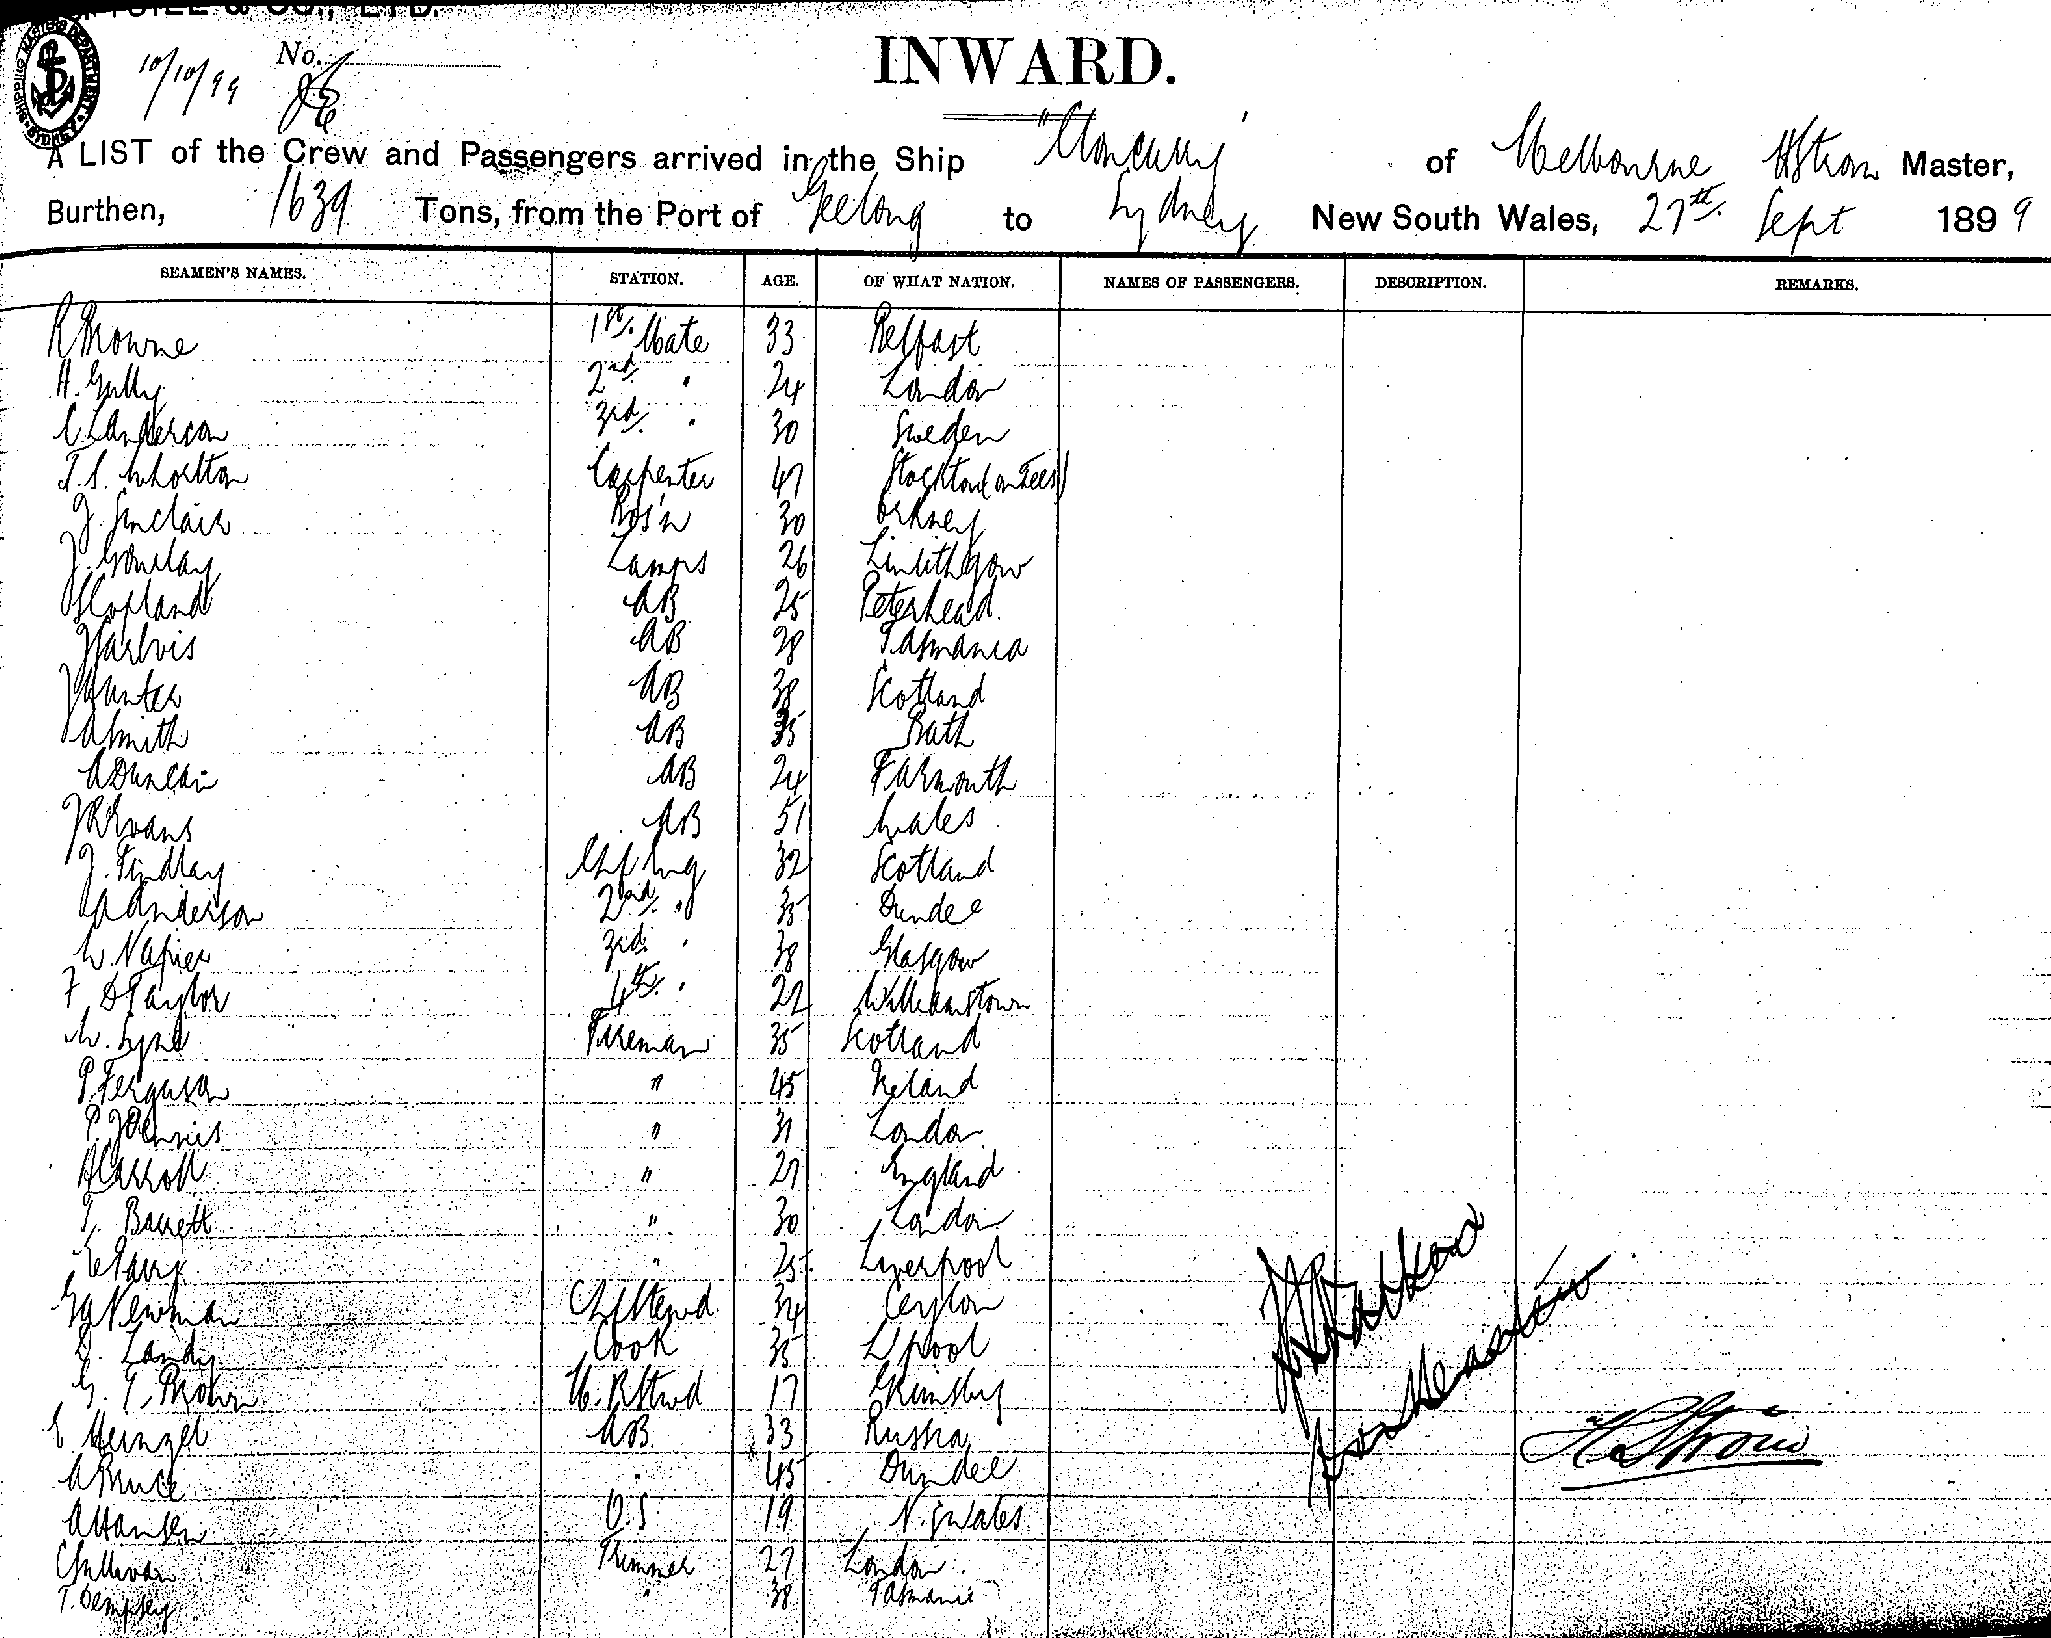 & CO., LTD.
SHIPPING MASTER DEPARTMENT SYDNEY
10/10/99 No.
INWARD.
A LIST of the Crew and Passengers arrived in the Ship "Cloncurry" of Melbourne H Strom Master,
Burthen, 1639 Tons, from the Port of Geelong to Sydney New South Wales, 27th Sept 1899
SEAMEN'S NAMES. STATION. AGE. OF WHAT NATION. NAMES OF PASSENGERS. DESCRIPTION. REMARKS.
R Browne 1st Mate 33 Belfast
H. Gully 2nd " 24 London
C. Anderson 3rd " 30 Sweden
T. S. Whorlton Carpenter 47 Stockton (on Tees)
J. Sinclair Bos'n 30 Orkney
J. Gourlay Lamps 26 Linlithgow
Copland AB 25 Peterhead
J Jarvis AB 28 Tasmania
J Hunter AB 38 Scotland
A Smith AB 35 Bath
A Duncan AB 24 Yarmouth
J R Evans AB 51 Wales
J. Findlay Chf Eng 32 Scotland
A Anderson 2nd " 35 Dundee
W. Napier 3rd " 38 Glasgow
F D Taylor 4th " 22 Williamstown
W. Lyne Fireman 35 Scotland
P. Ferguson " 45 Ireland
P. J " 31 London
Carroll " 27 England
T. Barrett " 30 London
" 25 Liverpool
G A Newman Ch Steward 34 Ceylon
Landy Cook 35 L'pool
G. E. Brown 17 Grimsby
E Heinzel AB 33 Russia
A Bruce " 45 Dundee
A Hansen O.S 19 N. S Wales
C Sullivan Trimmer 27 London
T. Dempsey " 38 Tasmania
H Strom